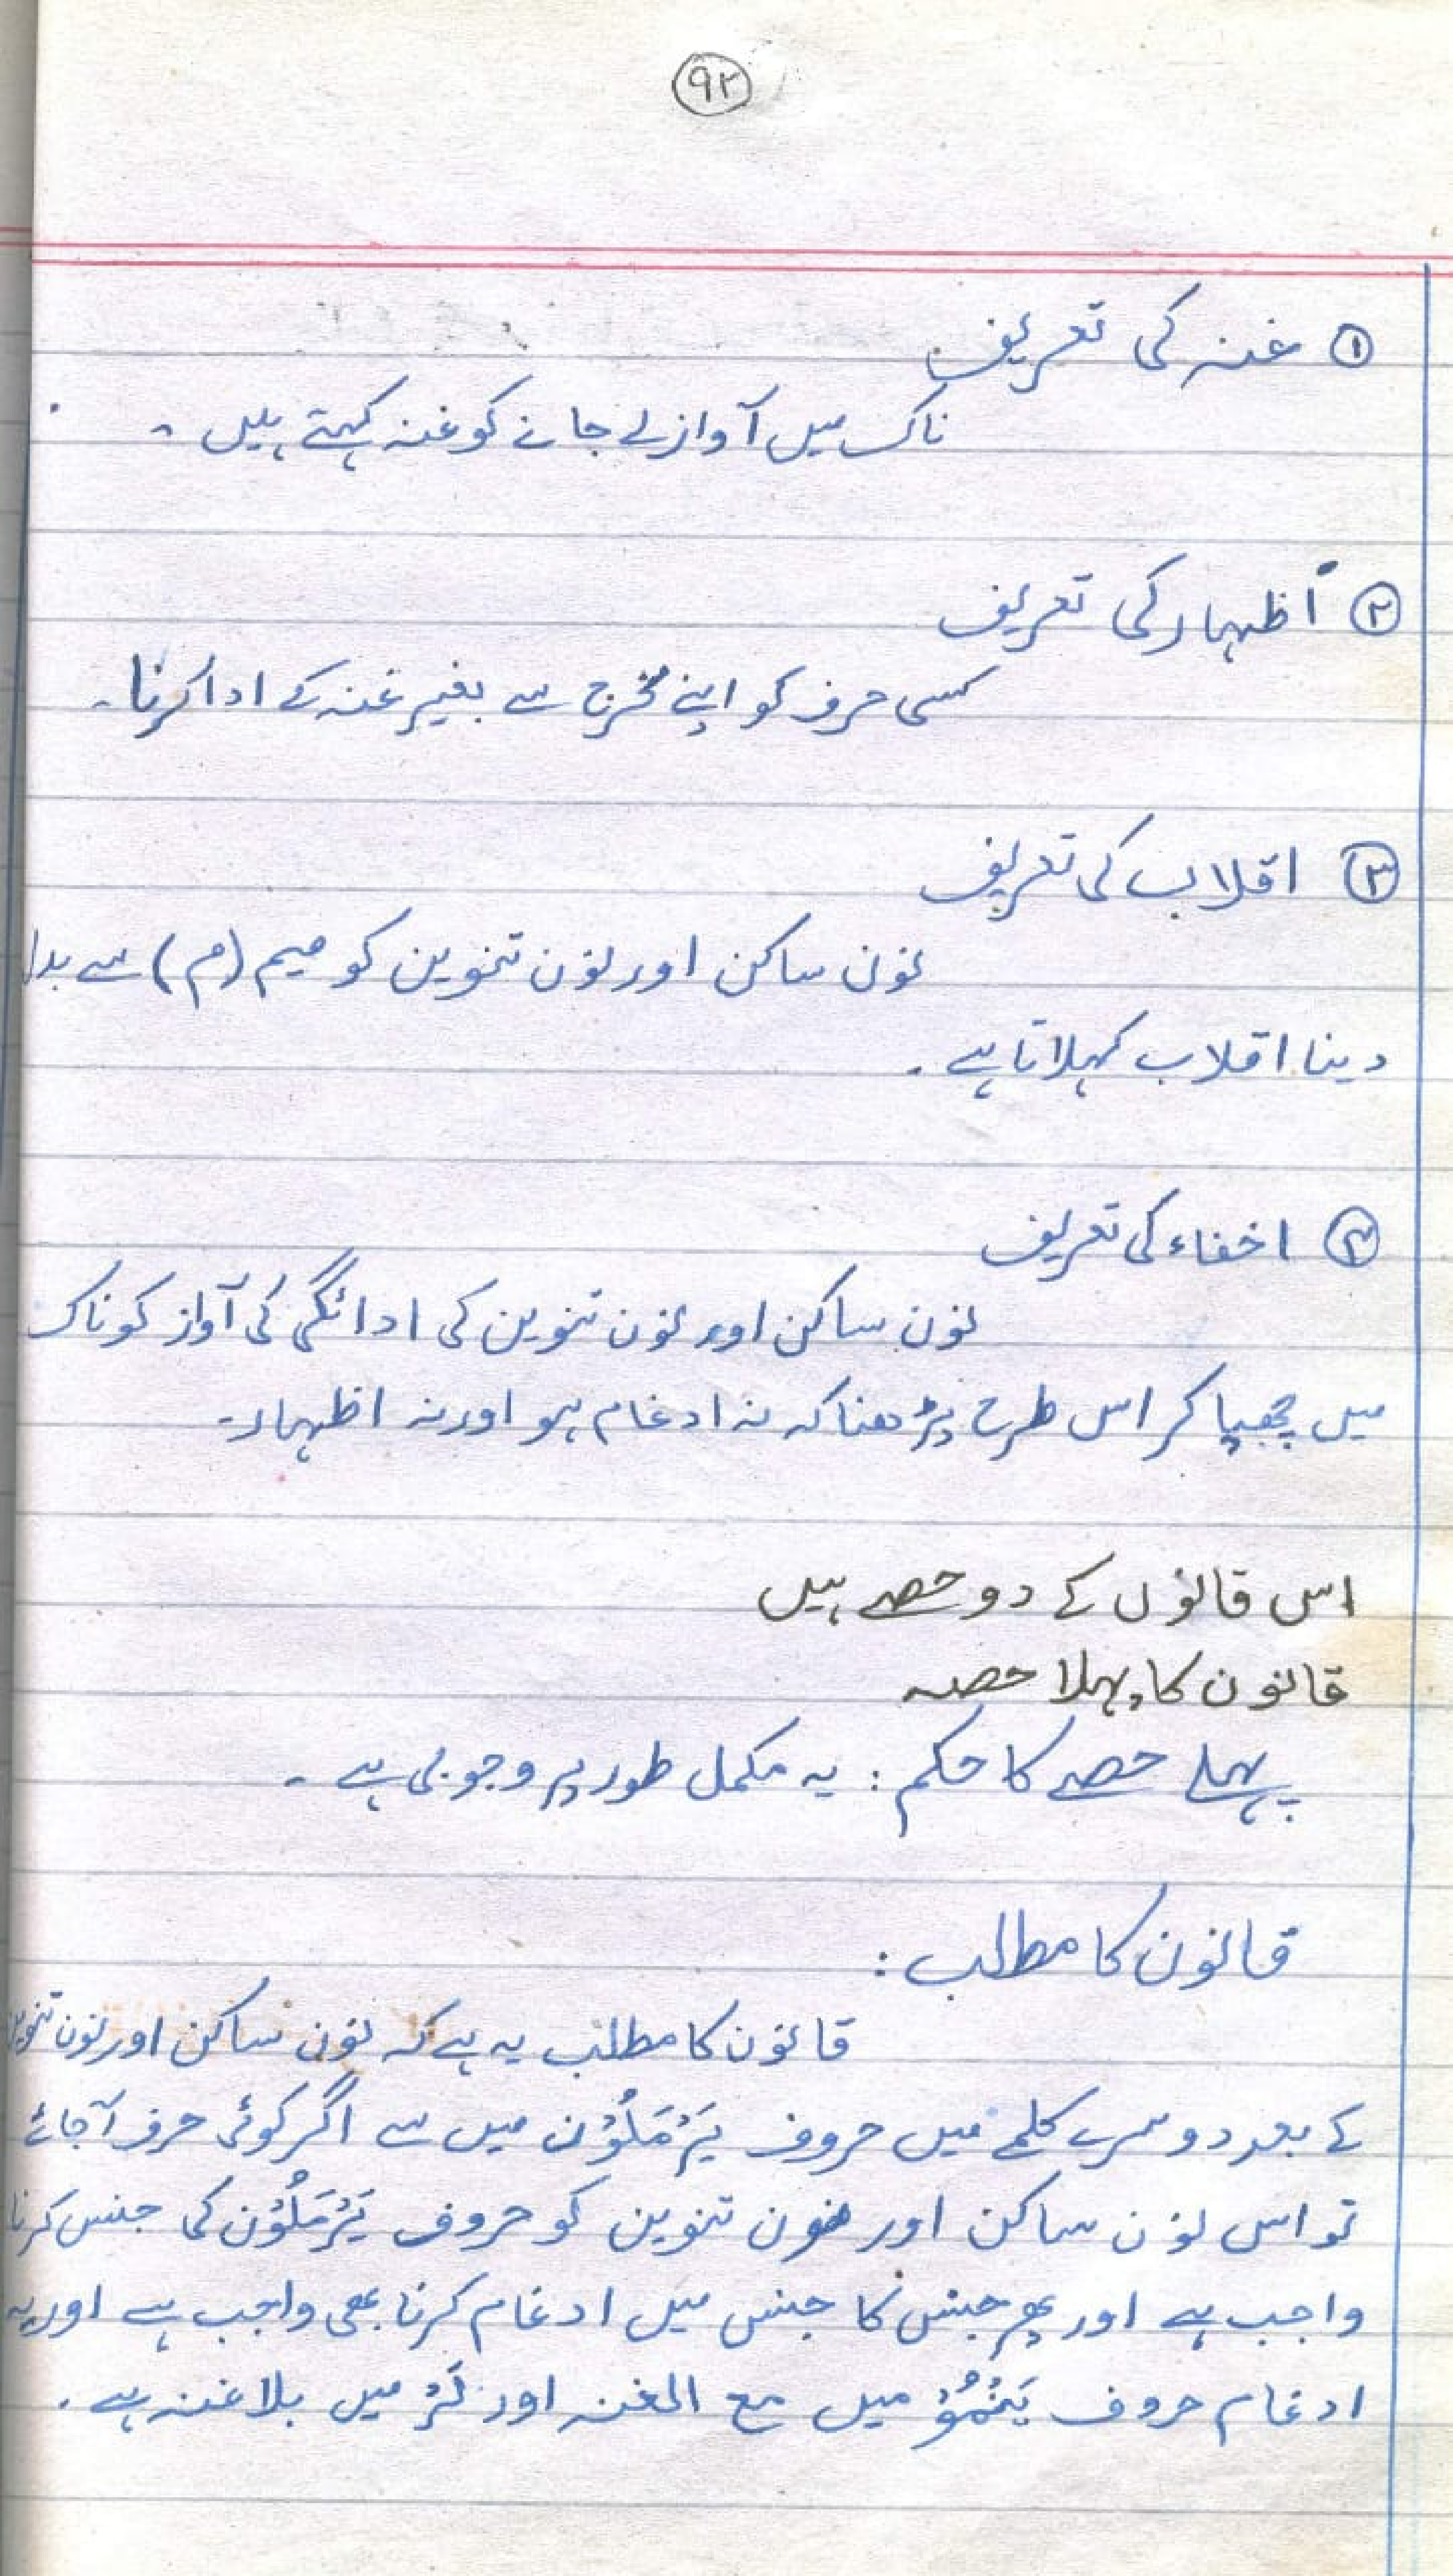 ۹۲
① غنہ کی تعریف
ناک میں آواز لے جانے کو غنہ کہتے ہیں ۔
② اظہار کی تعریف
کسی حرف کو اپنے مخرج سے بغیر غنہ کے ادا کرنا۔
③ اقلاب کی تعریف
نون ساکن اور نون تنوین کو میم (م) سے بدل
دینا اقلاب کہلاتا ہے ۔
④ اخفاء کی تعریف
نون ساکن اور نون تنوین کی ادائگی کی آواز کو ناک
میں چھپا کر اس طرح پڑھنا کہ نہ ادغام ہو اور نہ اظہار۔
اس قانون کے دو حصے ہیں
قانون کا پہلا حصہ
پہلے حصے کا حکم : یہ مکمل طور پر وجوبی ہے ۔
قانون کا مطلب :
قانون کا مطلب یہ ہے کہ نون ساکن اور نون تنوین
کے بعد دوسرے کلمے میں حروف یَرْمَلُوْن میں سے اگر کوئی حرف آجائے
تو اس نون ساکن اور نون تنوین کو حروف یَرْمَلُوْن کی جنس کرنا
واجب ہے اور پھر جنس کا جنس میں ادغام کرنا بھی واجب ہے اور یہ
ادغام حروف یَنْمُوْ میں مع الغنہ اور لَرْ میں بلا غنہ ہے ۔